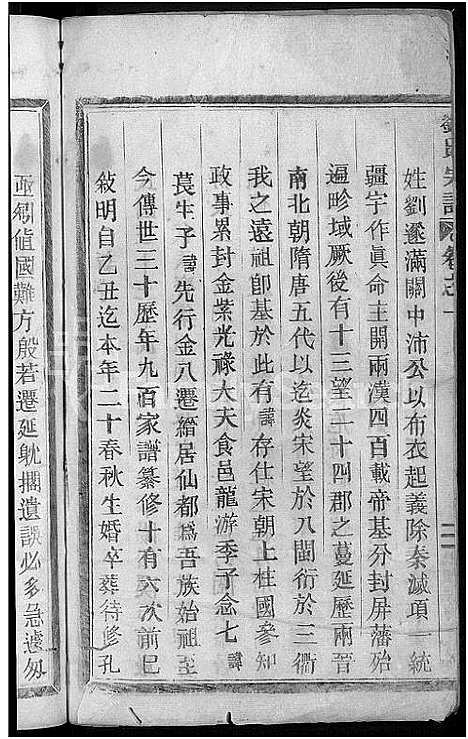 劉氏宗譜 卷之一
姓劉遂滿關中沛公以布衣起義除秦滅項一統
疆宇作眞命主開兩漢四百載帝基分封屏藩殆
遍畛域厥後有十三望二十四郡之蔓延歷兩晉
南北朝隋唐五代以迄炎宋望於八閩衍於三衢
我之遠祖卽基於此有諱存仕宋朝上柱國參知
政事累封金紫光祿大夫食邑龍游季子念七諱
萇生子諱先行金八遷縉居仙都爲吾族始祖至
今傳世三十歷年九百家譜纂修十有六次前已
敍明自乙丑迄本年二十春秋生婚卒葬待修孔
亟刎值國難方殷若遷延躭擱遺誤必多急遽匆